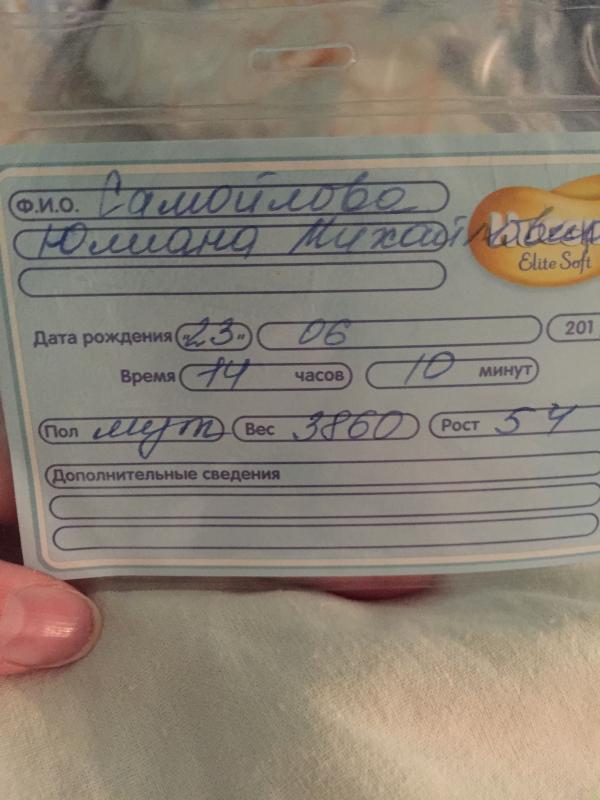 Ф.И.О. Самойлова
Юлиана Михайловна
Elite Soft
Дата рождения „23„ 06 201
Время 14 часов 10 минут
Пол муж Вес 3860 Рост 54
Дополнительные сведения